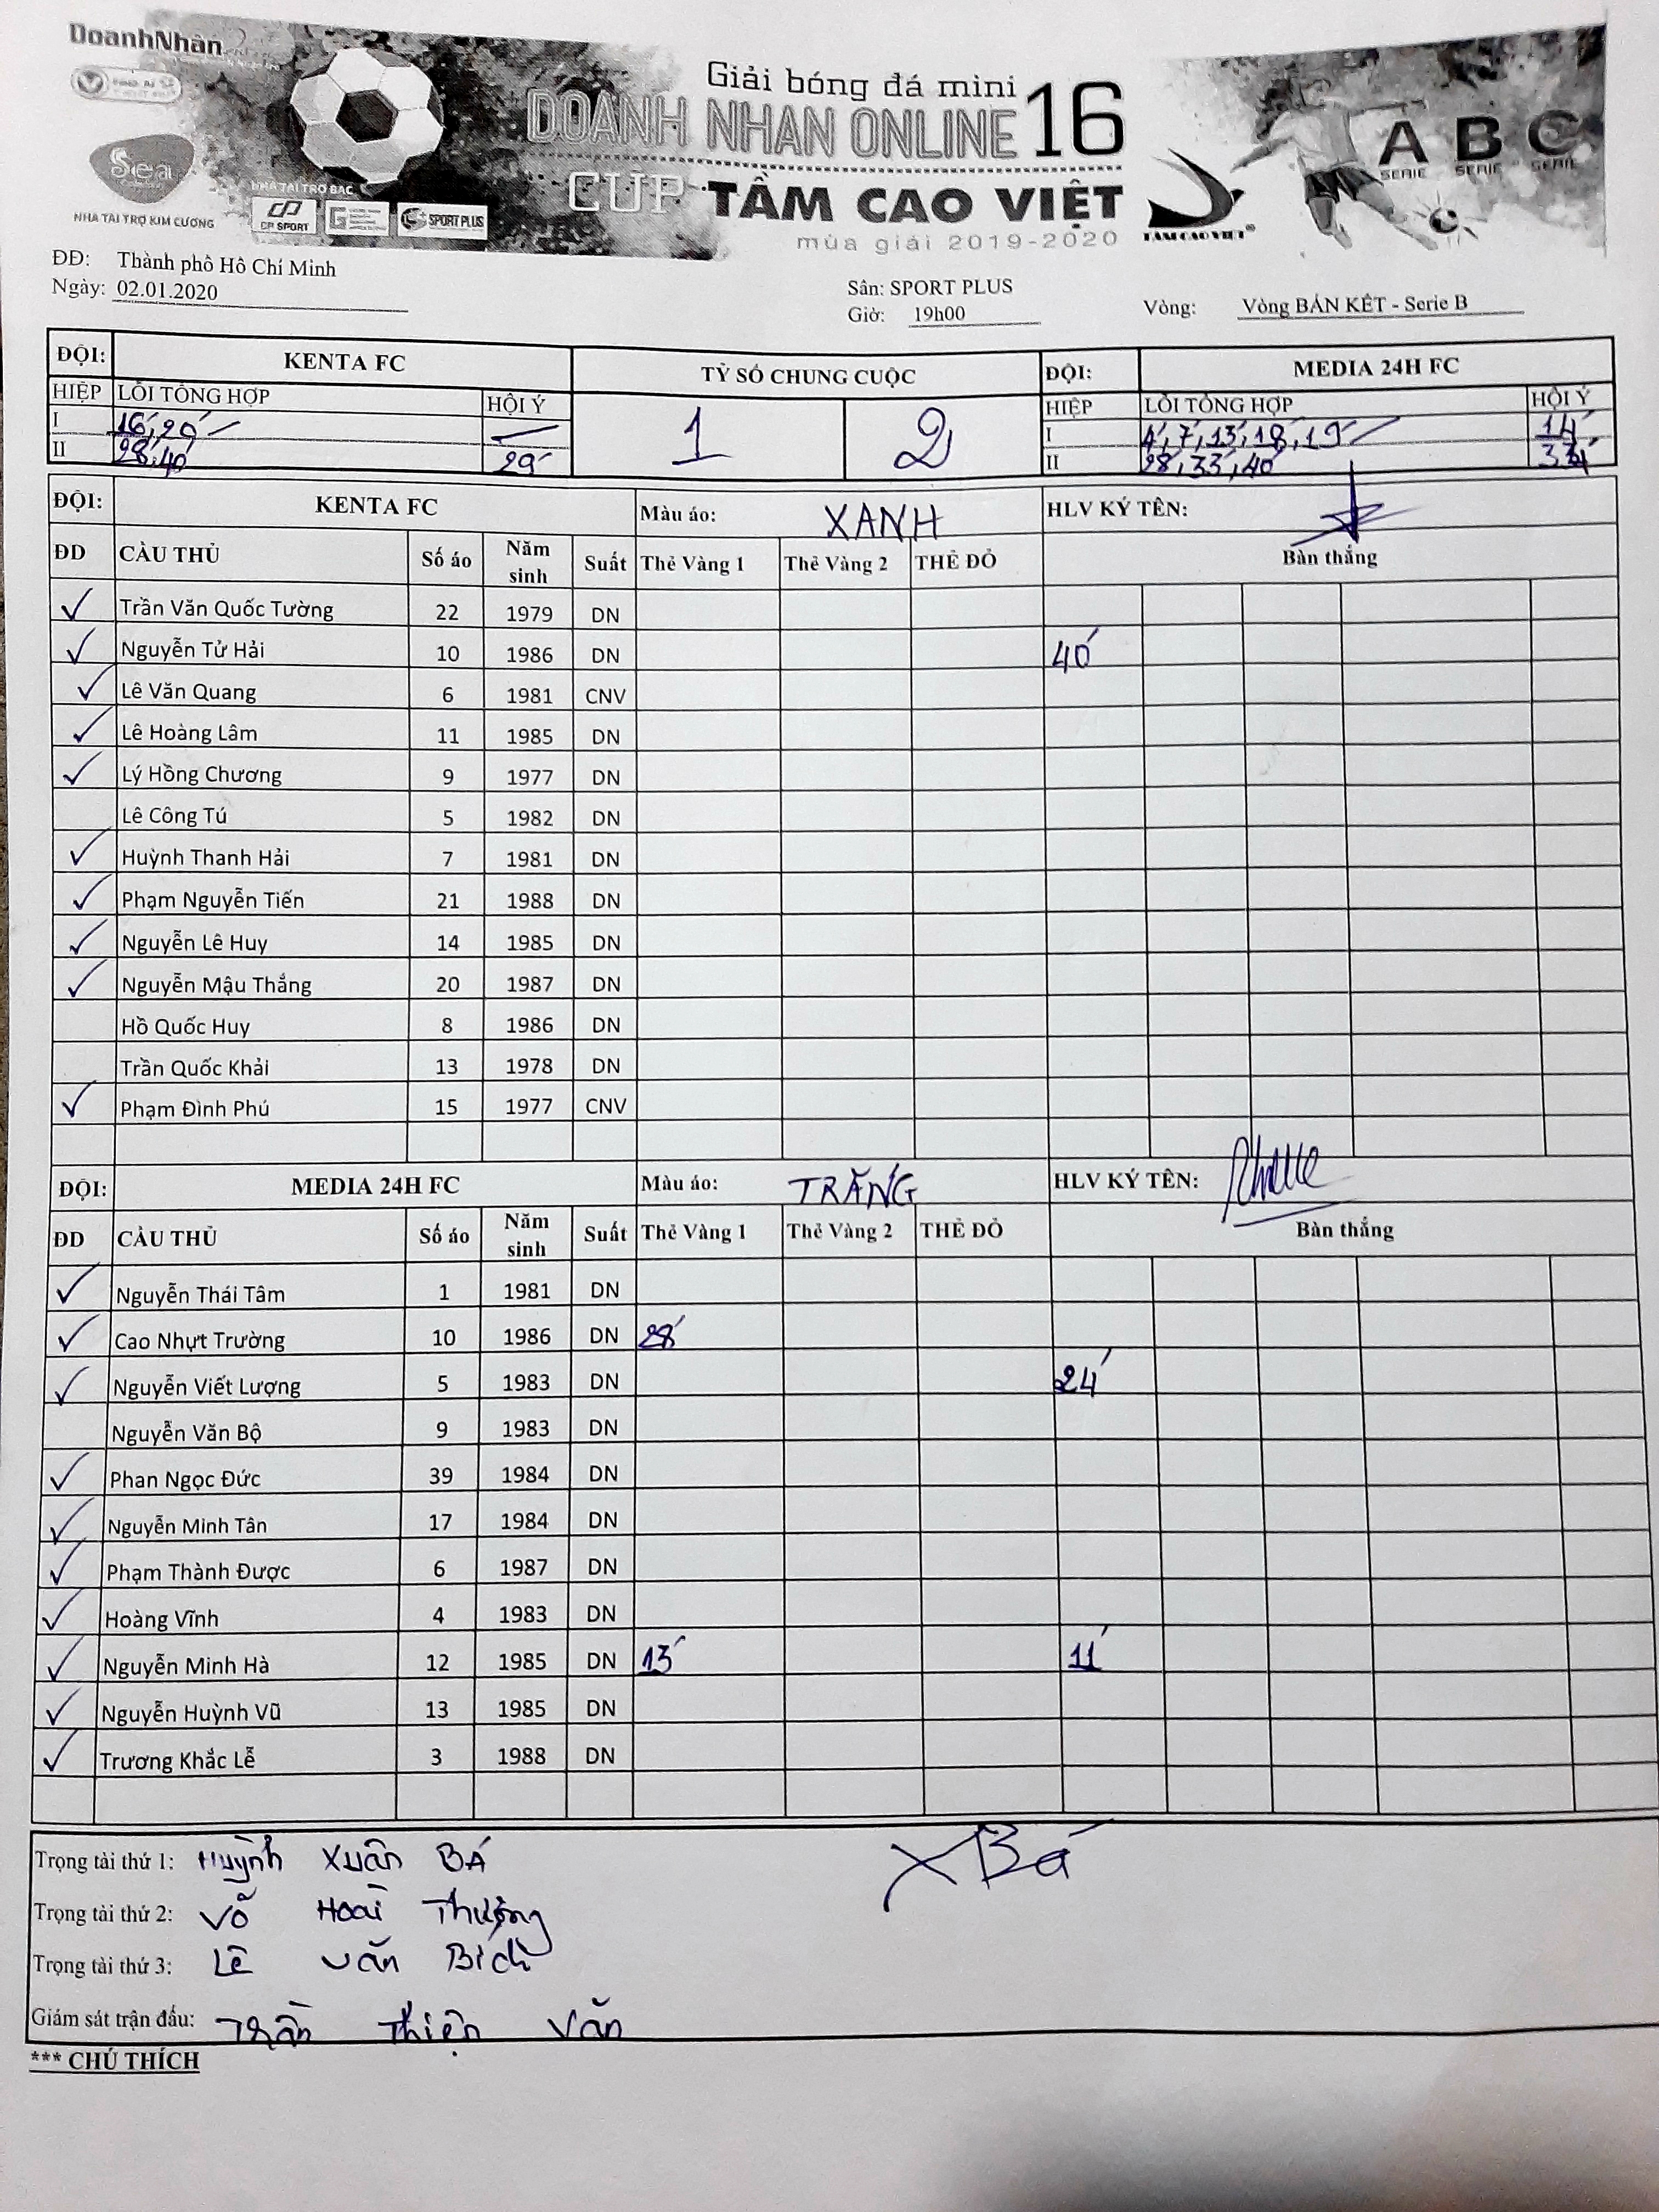 DoanhNhân
Sea
NHÀ TÀI TRỢ KIM CƯƠNG
NHÀ TÀI TRỢ BẠC
CP SPORT
SPORT PLUS
Giải bóng đá mini
DOANH NHAN ONLINE 16
CUP TẦM CAO VIỆT
mùa giải 2019-2020
TAMCAOVIET®
A SERIE B SERIE C SERIE
ĐĐ: Thành phố Hồ Chí Minh
Ngày: 02.01.2020
Sân: SPORT PLUS
Giờ: 19h00
Vòng: Vòng BÁN KẾT - Serie B
ĐỘI: KENTA FC TỶ SỐ CHUNG CUỘC ĐỘI: MEDIA 24H FC
HIỆP LỖI TỔNG HỢP HỘI Ý 1 2 HIỆP LỖI TỔNG HỢP HỘI Ý
I 16', 20' I 4', 7', 13', 18', 19' 14'
II 28', 40' 29' II 28', 33', 40'
ĐỘI: KENTA FC Màu áo: XANH HLV KÝ TÊN:
ĐD CẦU THỦ Số áo Năm sinh Suất Thẻ Vàng 1 Thẻ Vàng 2 THẺ ĐỎ Bàn thắng
✓ Trần Văn Quốc Tường 22 1979 DN
✓ Nguyễn Tử Hải 10 1986 DN 40'
✓ Lê Văn Quang 6 1981 CNV
✓ Lê Hoàng Lâm 11 1985 DN
✓ Lý Hồng Chương 9 1977 DN
Lê Công Tú 5 1982 DN
✓ Huỳnh Thanh Hải 7 1981 DN
✓ Phạm Nguyễn Tiến 21 1988 DN
✓ Nguyễn Lê Huy 14 1985 DN
✓ Nguyễn Mậu Thắng 20 1987 DN
Hồ Quốc Huy 8 1986 DN
Trần Quốc Khải 13 1978 DN
✓ Phạm Đình Phú 15 1977 CNV
ĐỘI: MEDIA 24H FC Màu áo: TRẮNG HLV KÝ TÊN:
ĐD CẦU THỦ Số áo Năm sinh Suất Thẻ Vàng 1 Thẻ Vàng 2 THẺ ĐỎ Bàn thắng
✓ Nguyễn Thái Tâm 1 1981 DN
✓ Cao Nhựt Trường 10 1986 DN 28'
✓ Nguyễn Viết Lượng 5 1983 DN 24'
Nguyễn Văn Bộ 9 1983 DN
✓ Phan Ngọc Đức 39 1984 DN
✓ Nguyễn Minh Tân 17 1984 DN
✓ Phạm Thành Được 6 1987 DN
✓ Hoàng Vĩnh 4 1983 DN
✓ Nguyễn Minh Hà 12 1985 DN 13' 11'
✓ Nguyễn Huỳnh Vũ 13 1985 DN
✓ Trương Khắc Lễ 3 1988 DN
Trọng tài thứ 1: Huỳnh Xuân BÁ XBá
Trọng tài thứ 2: Võ Hoài Thượng
Trọng tài thứ 3: Lê Văn Bích
Giám sát trận đấu: Trần Thiện Văn
*** CHÚ THÍCH